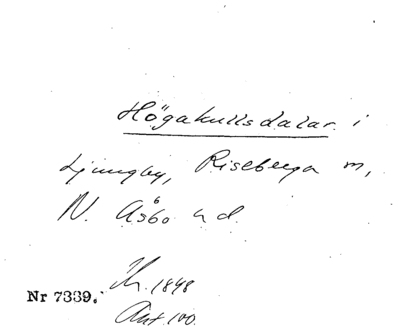 Högakullsdalar i
Ljungby, Riseberga m,
N. Åsbo hd.
Nr 7339. 1848
Ant. 100.